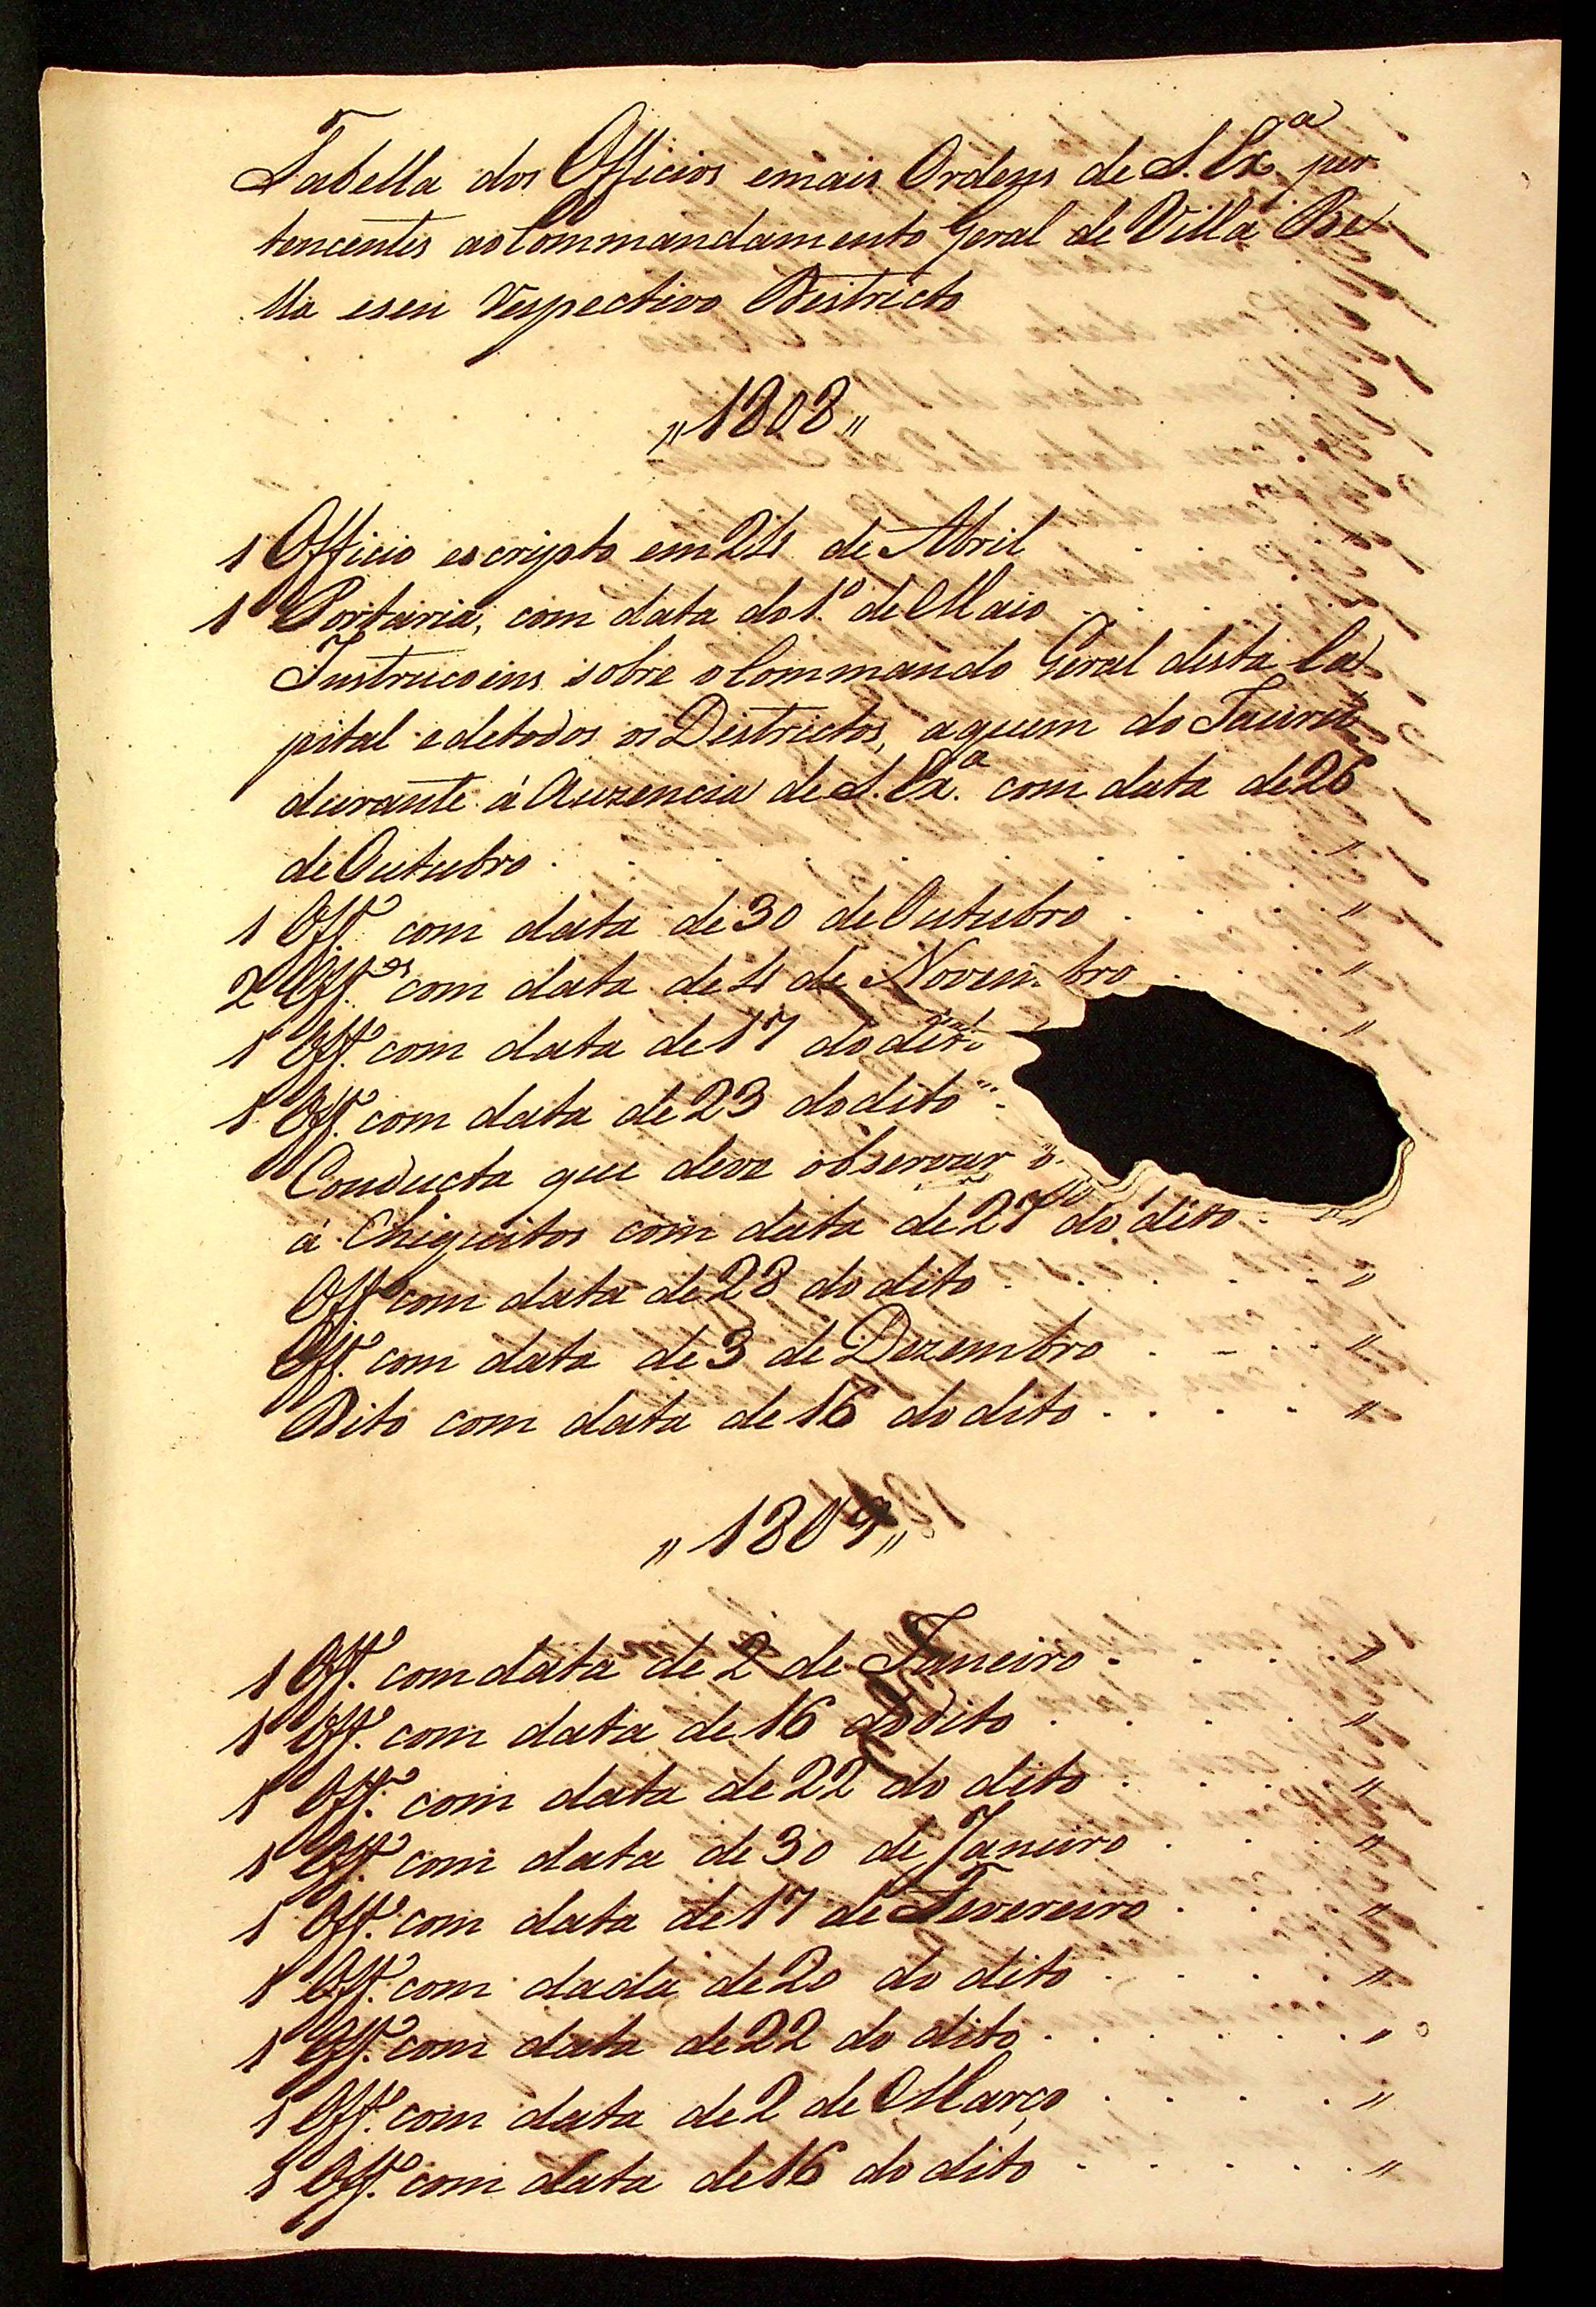 Tabella dos Officios emais Ordens de S. Exª per
tencentes ao Commandamento Geral de Villa Be
lla eseu Respectivo Districto
„1808„
1 Officio escripto em 24 de Abril . . .
1 Portaria, com data do 1.º de Maio . . . . . „
Instrucoens sobre o Commando Geral desta Ca
pital e detodos os Districtos, aquem do Jaurú
durante á Auzencia de S. Exª. com data de 26
de Outubro . . . . . . „
1 Off.º com data de 30 de Outubro . . . . „
2 Off.os com data de 4 de Novembro . . . . „
1 Off.º com data de 17 do dito „
1 Off.º com data de 23 do dito
Conducta que deve observar o
á Chiquitos com data de 27 do dito . . „
Off.º com data de 28 do dito . . . . . „
Off.º com data de 3 de Dezembro . . . . „
Dito com data de 16 do dito . . . . . „
„1809„
1 Off.º com data de 2 de Janeiro . . . . . „
1 Off.º com data de 16 do dito . . . . . „
1 Off.º com data de 22 do dito . . . . „
1 Off.º com data de 30 de Janeiro . . . „
1 Off.º com data de 17 de Fevereiro . . . „
1 Off.º com dada de 20 do dito . . . . . „
1 Off.º com data de 22 do dito . . . . . . . „
1 Off.º com data de 2 de Março . . . . . „
1 Off.º com data de 16 do dito . . . . . . „